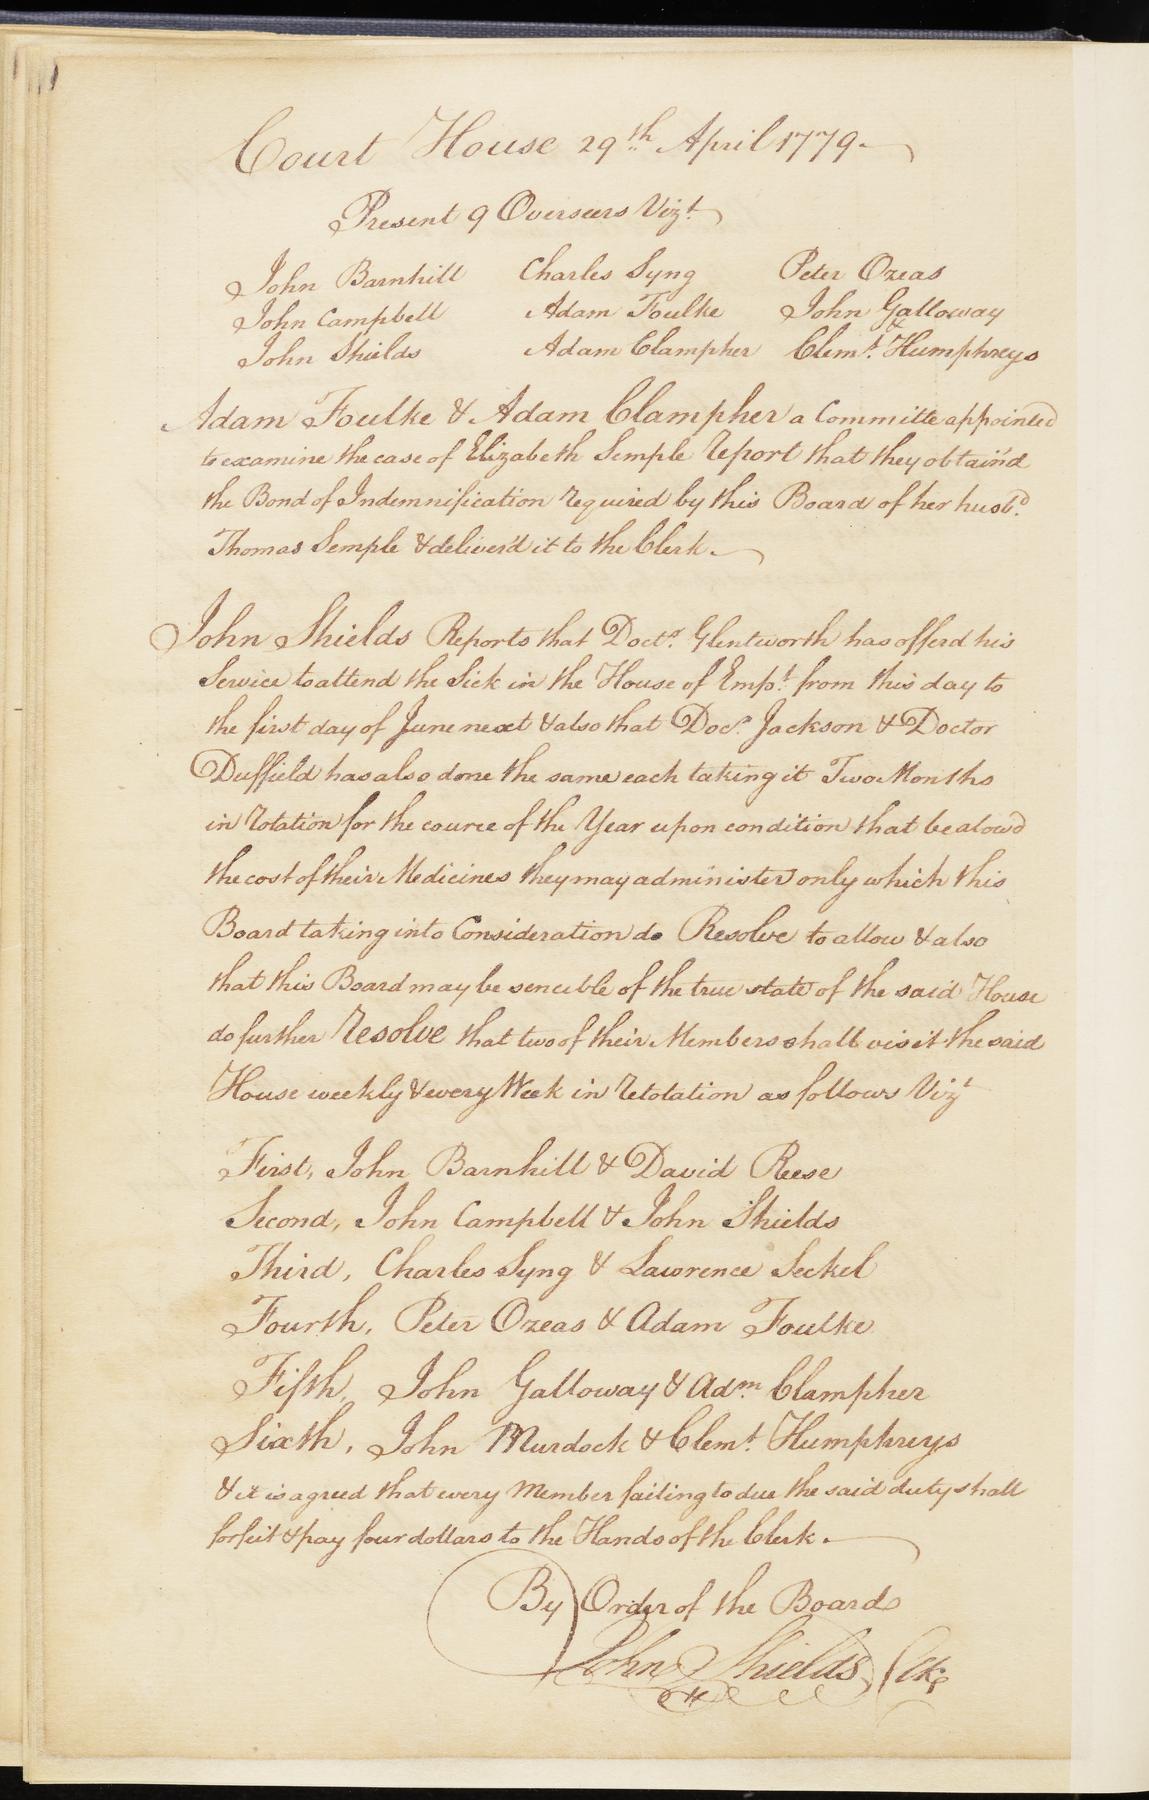 Court House 29th April 1779.
Present 9 Overseers Vizt
John Barnhill Charles Syng Peter Ozeas
John Campbell Adam Foulke John Galloway
&
John Shields Adam Clampher Clemt. Humphreys
Adam Foulke & Adam Clampher a Committe appointed
to examine the case of Elizabeth Semple report that they obtain'd
the Bond of Indemnification required by this Board of her husbd.
Thomas Semple & deliver'd it to the Clerk.
John Shields Reports that Doctr. Glentworth has offerd his
Service to attend the Sick in the House of Empt. from this day to
the first day of June next & also that Docr. Jackson & Doctor
Duffield has also done the same each taking it Two Months
in rotation for the cource of the Year upon condition that be alowd
the cost of their Medicines they may administer only which this
Board taking into Consideration do Resolve to allow & also
that this Board may be sencible of the true state of the said House
do further resolve that two of their Members shall visit the said
House weekly & every Week in retotation as follows Vizt
First, John Barnhill & David Reese
Second, John Campbell & John Shields
Third, Charles Syng & Lawrence Seckel
Fourth, Peter Ozeas & Adam Foulke
Fifth, John Galloway & Adm. Clampher
Sixth, John Murdock & Clemt. Humphreys
& it is agreed that every Member failing to due the said duty shall
forfeit & pay four dollars to the Hands of the Clerk.
By Order of the Board
John Shields Clk